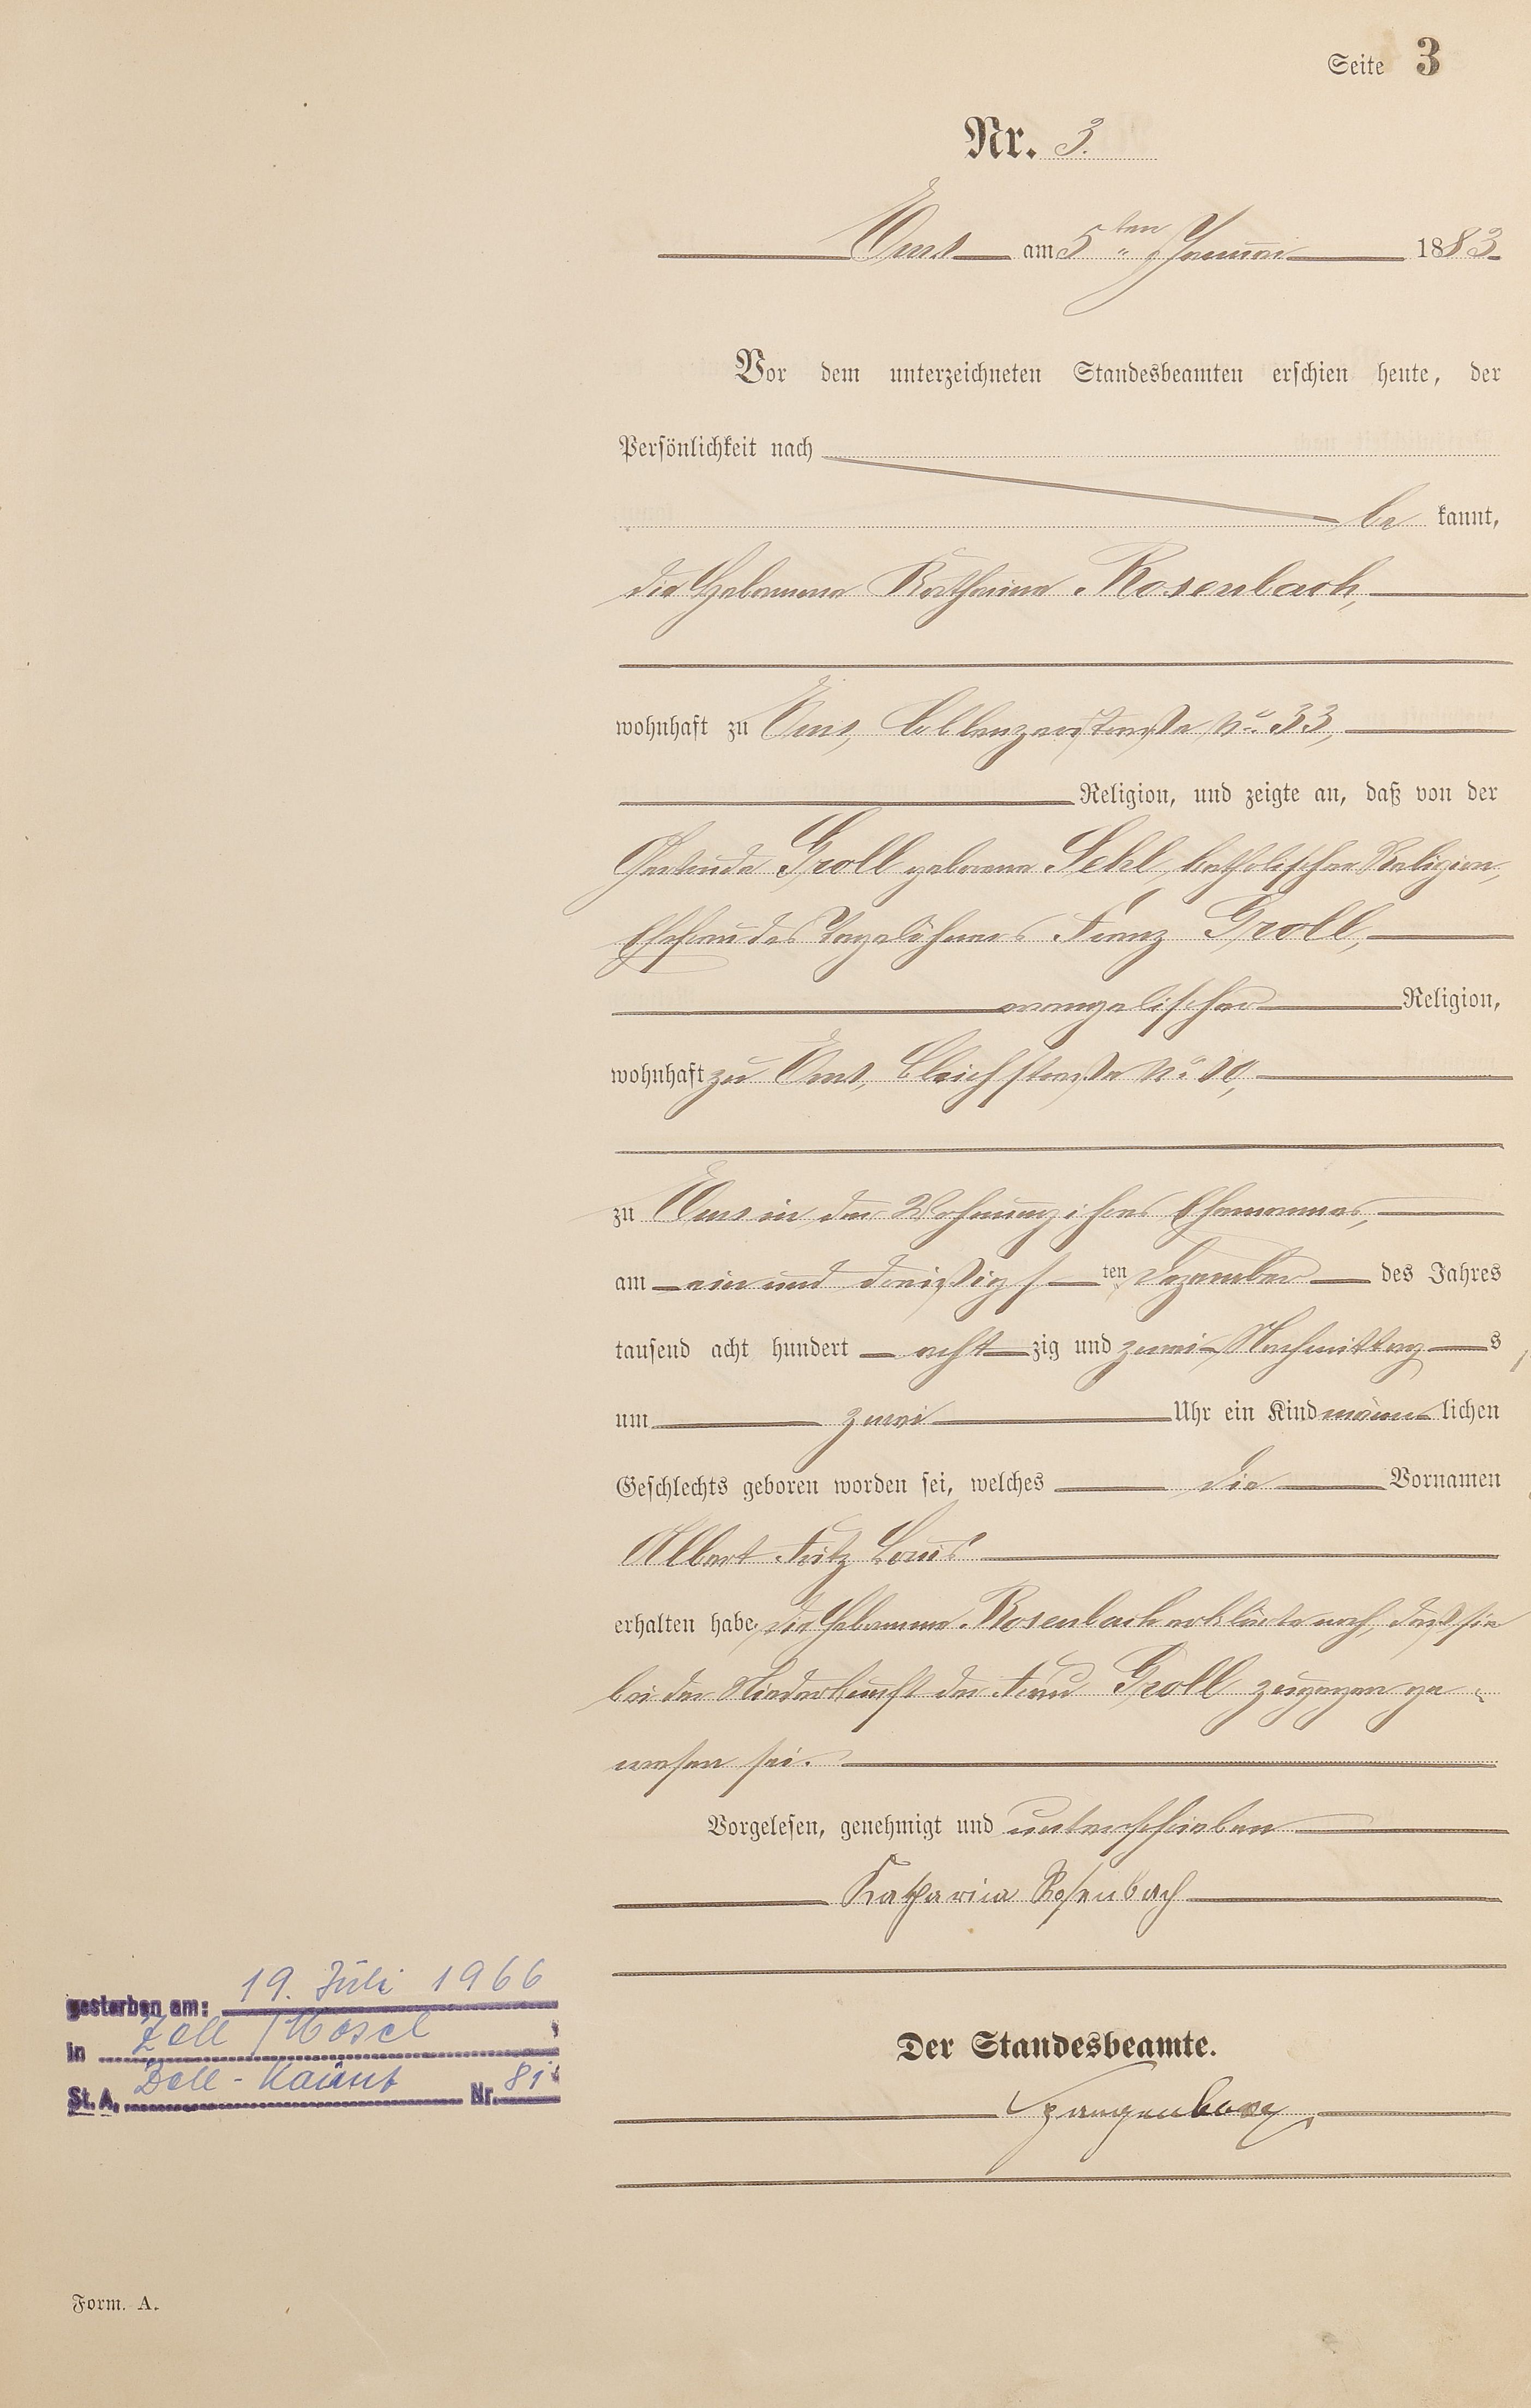 Seite 3
Nr. 3.
Ems am 5ten Januar 1883
Vor dem unterzeichneten Standesbeamten erschien heute, der
Persönlichkeit nach
be kannt,
die Hebamme Katharina Rosenbach,
wohnhaft zu Ems, Coblenzerstraße No. 33,
Religion, und zeigte an, daß von der
Gertrude Groll geborene Sehl, katholischer Religion,
Ehefrau des Tagelöhners Franz Groll,
evangelischer Religion,
wohnhaft zu Ems, Bleichstraße No.
zu Ems in der Wohnung ihres Ehemannes,
am ein und dreißigs ten Dezember des Jahres
tausend acht hundert acht zig und zwei Nachmittag s
um zwei Uhr ein Kind männ lichen
Geschlechts geboren worden sei, welches die Vornamen
Albert Fritz Louis
erhalten habe, die Hebamme Rosenbach erklärte noch, daß sie
bei der Niederkunft der Frau Groll zugegen ge-
wesen sei.
Vorgelesen, genehmigt und unterschrieben
Katharina Rosenbach
gestorben am: 19. Juli 1966
in Zell / Mosel
St. A. Zell - Kaimt Nr. 81
Der Standesbeamte.
Form. A.